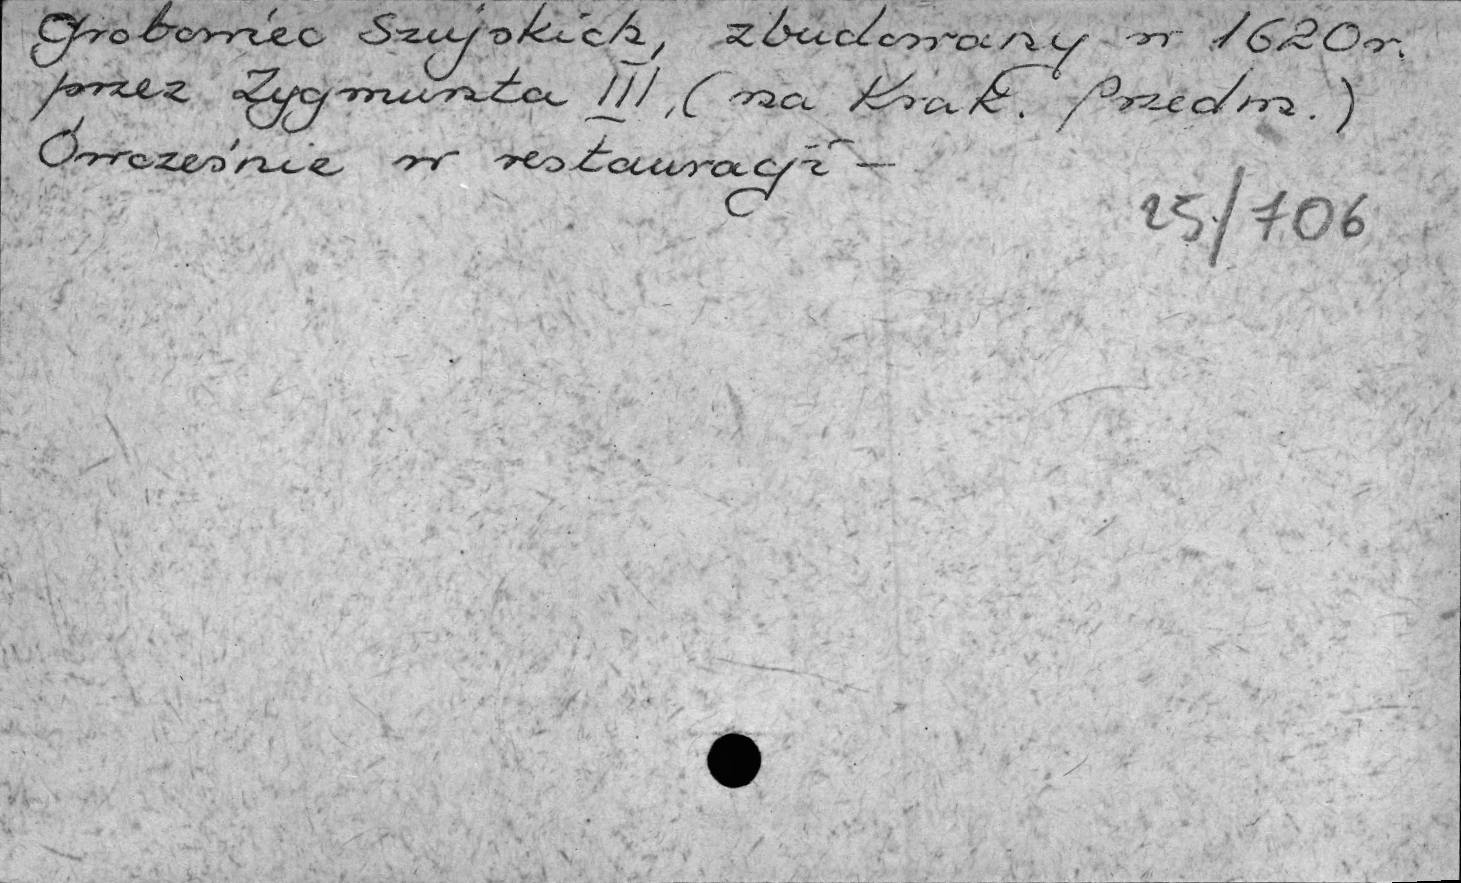 Grobowiec Szujskich, zbudowany w 1620 r.
przez Zygmunta III, (na Krak. Przedm.)
Ówcześnie w restauracji –
25/706